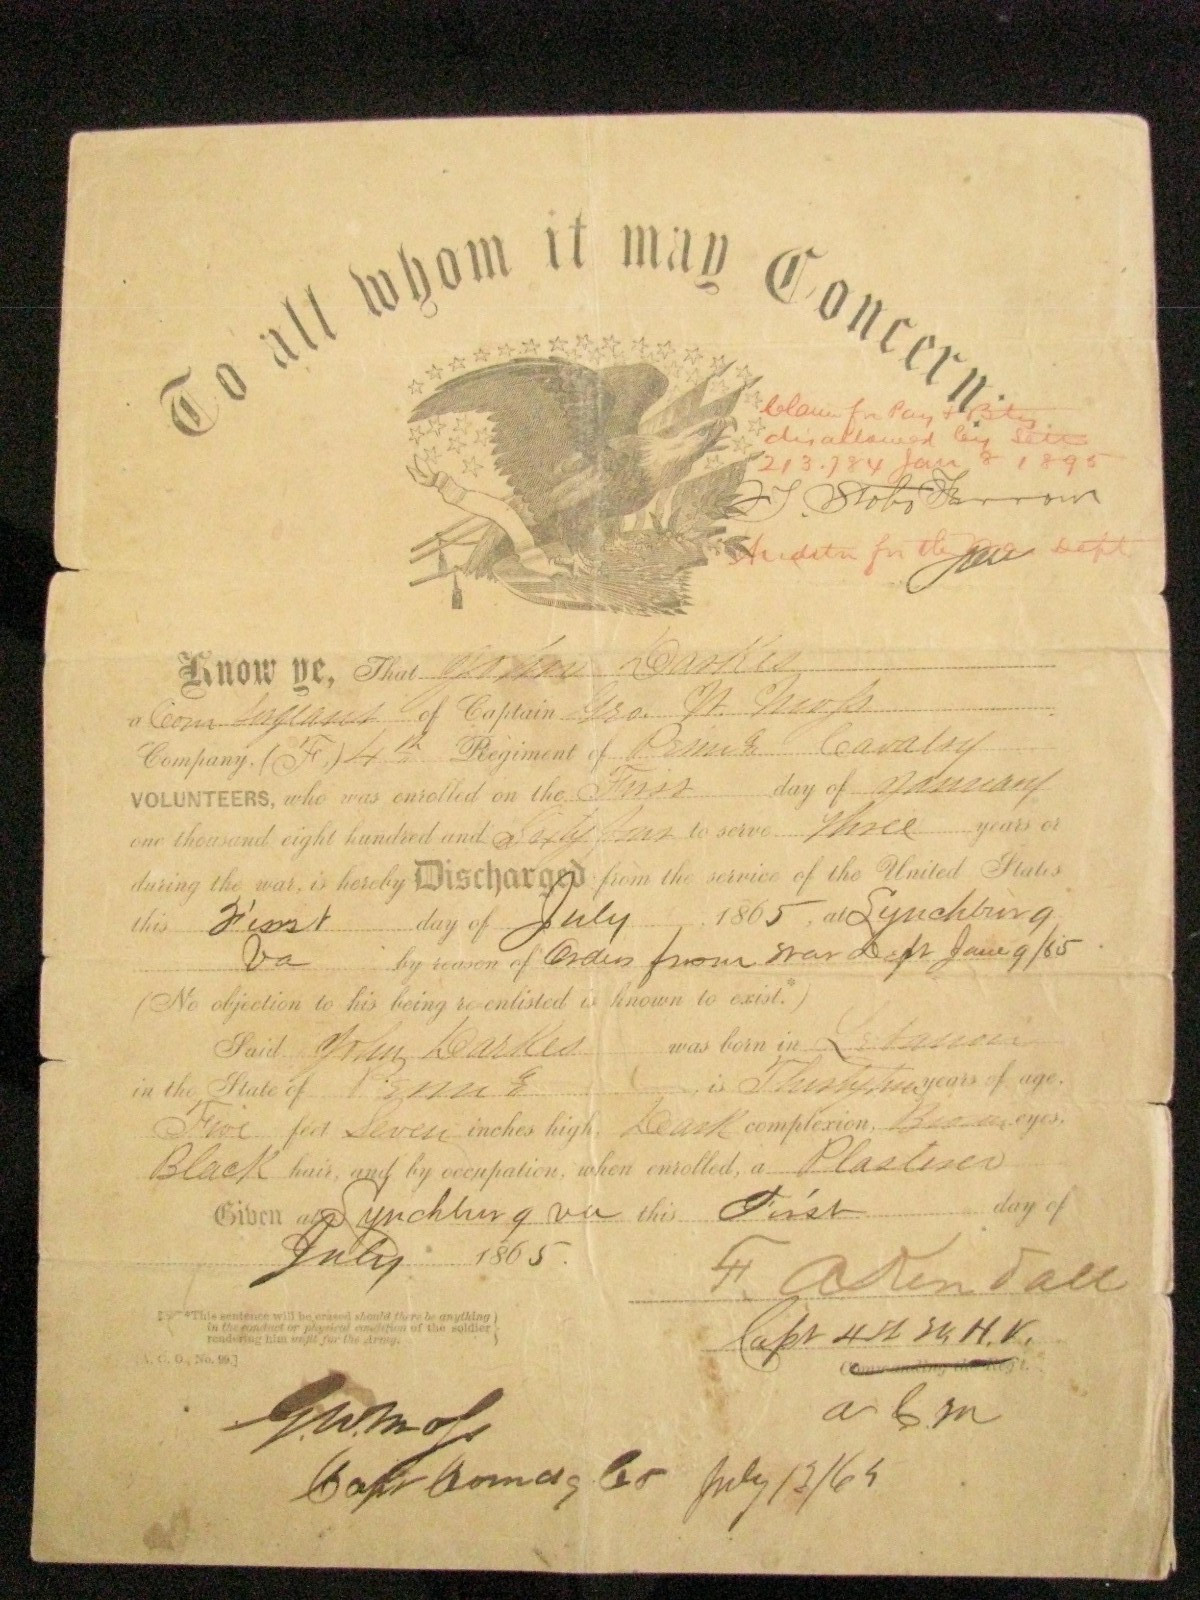 To all whom it may Concern:
Claim for Pay & Bty
disallowed by Settt
213.784 Jan 8 1895
Auditor for the War Dept
Know ye, That John Darkes
a Com Sergeant of Captain Geo. W.
Company, (F,) 4th Regiment of Penn Cavalry
VOLUNTEERS, who was enrolled on the First day of January
one thousand eight hundred and Sixty four to serve Three years or
during the war, is hereby Discharged from the service of the United States
this First day of July 1865, at Lynchburg
Va by reason of Orders from War Dept June 9/65
(No objection to his being re-enlisted is known to exist.*)
Said John Darkes was born in Lebanon
in the State of Penn is Thirty two years of age,
Five feet Seven inches high, Dark complexion, eyes,
Black hair, and by occupation, when enrolled, a Plasterer
Given at Lynchburg Va this First day of
July 1865.
F. A Kendall
*This sentence will be erased should there be anything
in the conduct or physical condition of the soldier
rendering him unfit for the Army.
Capt 4th
[A. G. O., No. 99.]
Commanding the Reg't.
A C. M
Capt Comdg Co July 13/65